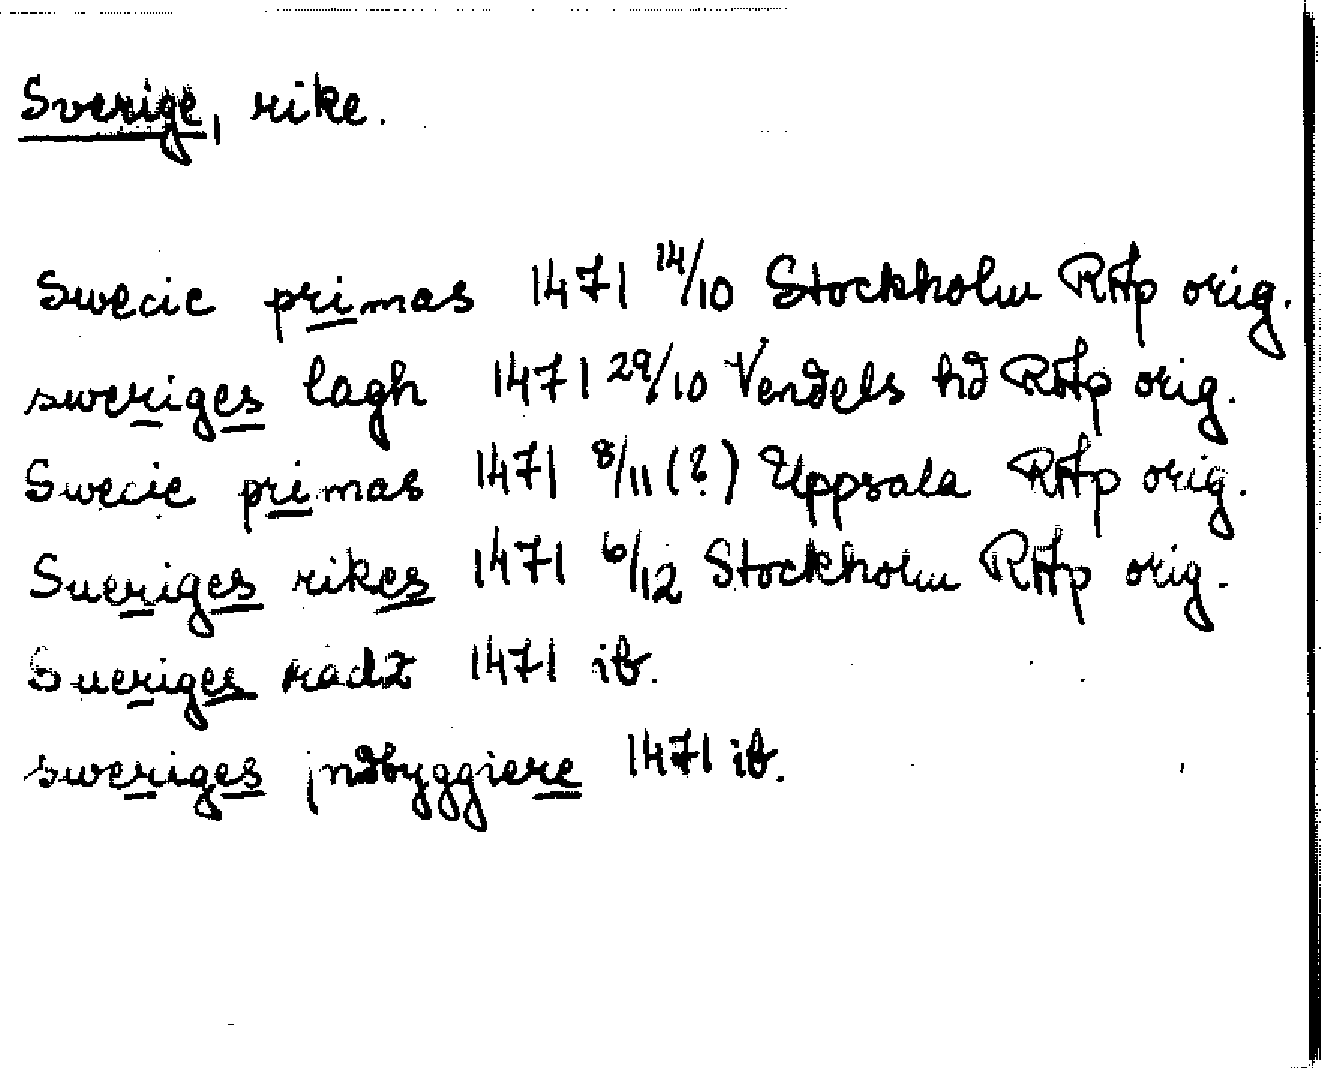 Sverige, rike.
Swecie primas 1471 14/10 Stockholm RAp orig.
sweriges lagh 1471 29/10 Vendels hd RAp orig.
Swecie primas 1471 8/11 (?) Uppsala RAp orig.
Sueriges rikes 1471 6/12 Stockholm RAp orig.
Sueriges radz 1471 ib.
sweriges jndbyggiere 1471 ib.